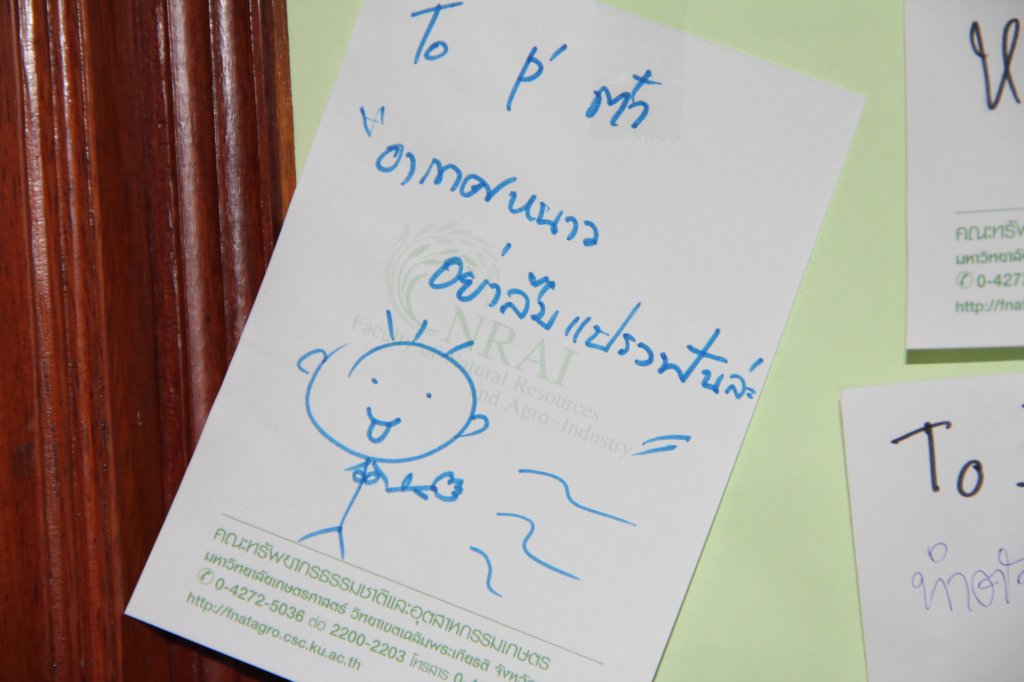 To p' ต่ำ
"อากาศหนาว
อย่าลืมแปรงฟันล่ะ
NRAI
Faculty of Natural Resources
and Agro-Industry
คณะทรัพยากรธรรมชาติและอุตสาหกรรมเกษตร
มหาวิทยาลัยเกษตรศาสตร์ วิทยาเขตเฉลิมพระเกียรติ จังหวัด
0-4272-5036 ต่อ 2200-2203 โทรสาร 0-4
http://fnatagro.csc.ku.ac.th
คณะทรัพ
มหาวิทยาลัย
0-4273
http://fna
To